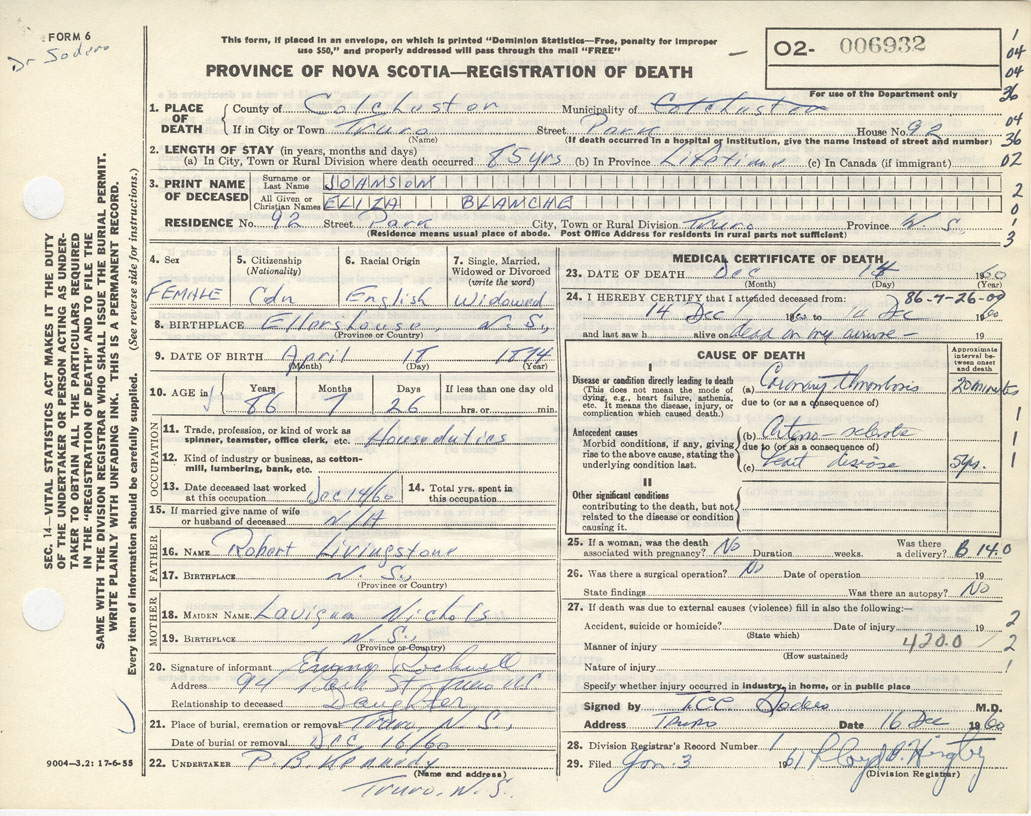 FORM 6
Dr Soders
This form, if placed in an envelope, on which is printed "Dominion Statistics—Free, penalty for improper
use $50," and properly addressed will pass through the mail "FREE"
PROVINCE OF NOVA SCOTIA—REGISTRATION OF DEATH
02- 006932
For use of the Department only
1. PLACE OF DEATH County of Colchester Municipality of Colchester
If in City or Town Truro Street Park House No. 92
(Name) (If death occurred in a hospital or institution, give the name instead of street and number)
2. LENGTH OF STAY (in years, months and days)
(a) In City, Town or Rural Division where death occurred 85 yrs (b) In Province Lifetime (c) In Canada (if immigrant)
3. PRINT NAME OF DECEASED Surname or Last Name JOHNSON
All Given or Christian Names ELIZA BLANCHE
RESIDENCE No. 92 Street Park City, Town or Rural Division Truro Province N.S.
(Residence means usual place of abode. Post Office Address for residents in rural parts not sufficient)
4. Sex FEMALE
5. Citizenship (Nationality) Cdn
6. Racial Origin English
7. Single, Married, Widowed or Divorced (write the word) Widowed
8. BIRTHPLACE Ellershouse, N.S.
(Province or Country)
9. DATE OF BIRTH April 18 1874
(Month) (Day) (Year)
10. AGE in Years 86 Months 7 Days 26 If less than one day old hrs. or min.
OCCUPATION
11. Trade, profession, or kind of work as spinner, teamster, office clerk, etc. Houseduties
12. Kind of industry or business, as cotton-mill, lumbering, bank, etc.
13. Date deceased last worked at this occupation Dec 14/60
14. Total yrs. spent in this occupation
15. If married give name of wife or husband of deceased N/A
FATHER
16. NAME Robert Livingstone
17. BIRTHPLACE N.S.
(Province or Country)
MOTHER
18. MAIDEN NAME Nichols
19. BIRTHPLACE N.S.
(Province or Country)
20. Signature of informant Rockwell
Address 94 Park St Truro NS
Relationship to deceased Daughter
21. Place of burial, cremation or removal Truro N.S.
Date of burial or removal Dec 16/60
22. UNDERTAKER P.B. Kennedy
(Name and address)
Truro, N.S.
MEDICAL CERTIFICATE OF DEATH
23. DATE OF DEATH Dec 14 1960
(Month) (Day) (Year)
86-7-26-00
24. I HEREBY CERTIFY that I attended deceased from:
14 Dec 1960 to 14 Dec 1960
and last saw h alive on dead on my 19
CAUSE OF DEATH
Approximate interval between onset and death
I
Disease or condition directly leading to death
(This does not mean the mode of dying, e.g., heart failure, asthenia, etc. It means the disease, injury, or complication which caused death.)
(a) Coronary Thrombosis 20 minutes
due to (or as a consequence of)
Antecedent causes
Morbid conditions, if any, giving rise to the above cause, stating the underlying condition last.
(b)
due to (or as a consequence of)
(c) heart disease 5 yrs.
II
Other significant conditions contributing to the death, but not related to the disease or condition causing it.
25. If a woman, was the death associated with pregnancy? No Duration weeks. Was there a delivery? B 14.0
26. Was there a surgical operation? No Date of operation 19
State findings Was there an autopsy? No
27. If death was due to external causes (violence) fill in also the following:—
Accident, suicide or homicide? Date of injury 19
(State which)
Manner of injury 420.0
(How sustained)
Nature of injury
Specify whether injury occurred in industry, in home, or in public place
Signed by Soders M.D.
Address Truro Date 16 Dec 1960
28. Division Registrar's Record Number 1
29. Filed Jan. 3 1961
(Division Registrar)
1
04
04
36
04
36
02
2
0
3
1
1
1
1
2
2
1
SEC. 14—VITAL STATISTICS ACT MAKES IT THE DUTY
OF THE UNDERTAKER OR PERSON ACTING AS UNDER-
TAKER TO OBTAIN ALL THE PARTICULARS REQUIRED
IN THE "REGISTRATION OF DEATH" AND TO FILE THE
SAME WITH THE DIVISION REGISTRAR WHO SHALL ISSUE THE BURIAL PERMIT.
WRITE PLAINLY WITH UNFADING INK. THIS IS A PERMANENT RECORD.
Every item of information should be carefully supplied. (See reverse side for instructions.)
9004—3.2: 17-6-55